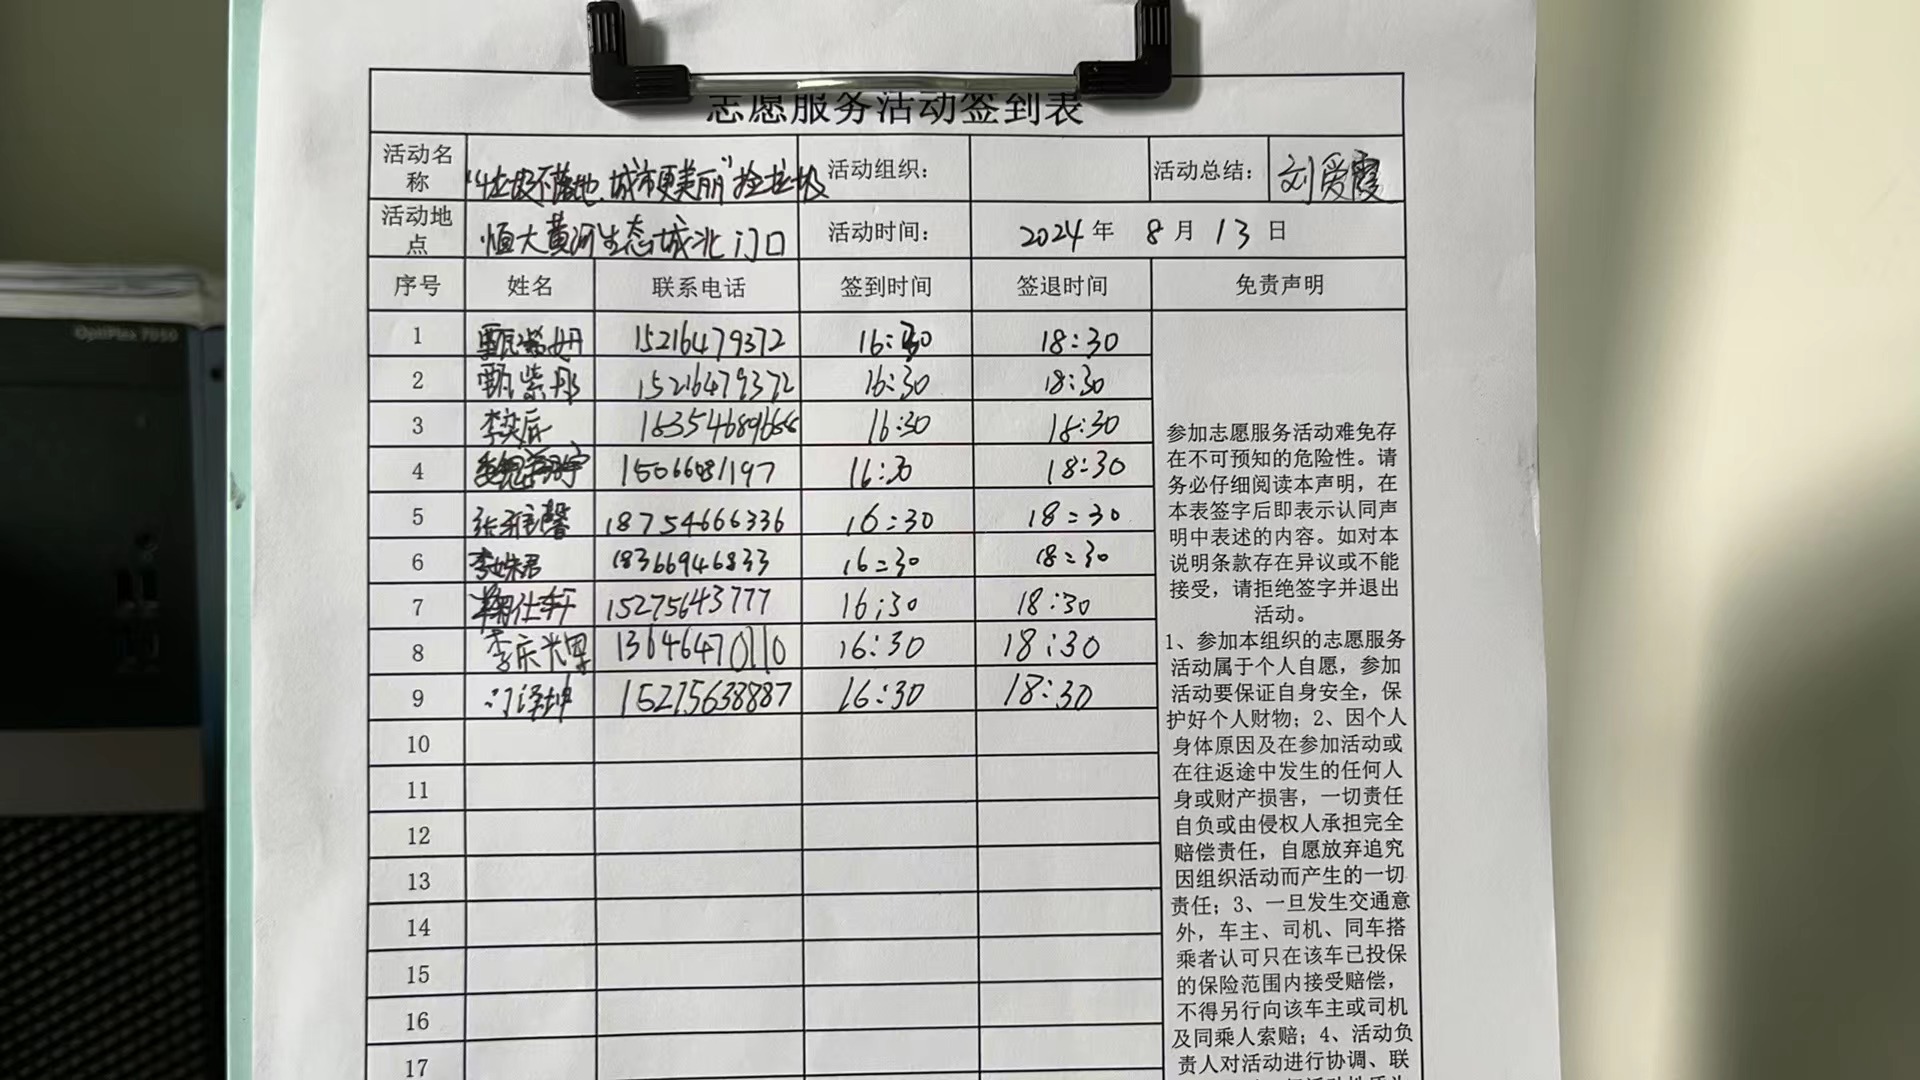 志愿服务活动签到表
活动名称 "垃圾不落地,城市更美丽"捡垃圾 活动组织: 活动总结: 刘爱霞
活动地点 恒大黄河生态城北门口 活动时间: 2024年 8月 13日
序号 姓名 联系电话 签到时间 签退时间 免责声明
1 15216479372 16:30 18:30
2 甄紫彤 15216479372 16:30 18:30
3 16:30 18:30
4 15066681197 16:30 18:30
5 张雅馨 18754666336 16:30 18:30
6 李姝君 18366946833 16:30 18:30
7 15275643777 16:30 18:30
8 13646470110 16:30 18:30
9 门泽坤 15275638887 16:30 18:30
10
11
12
13
14
15
16
17
参加志愿服务活动难免存
在不可预知的危险性。请
务必仔细阅读本声明,在
本表签字后即表示认同声
明中表述的内容。如对本
说明条款存在异议或不能
接受,请拒绝签字并退出
活动。
1、参加本组织的志愿服务
活动属于个人自愿,参加
活动要保证自身安全,保
护好个人财物;2、因个人
身体原因及在参加活动或
在往返途中发生的任何人
身或财产损害,一切责任
自负或由侵权人承担完全
赔偿责任,自愿放弃追究
因组织活动而产生的一切
责任;3、一旦发生交通意
外,车主、司机、同车搭
乘者认可只在该车已投保
的保险范围内接受赔偿,
不得另行向该车主或司机
及同乘人索赔;4、活动负
责人对活动进行协调、联
OptiPlex 7050